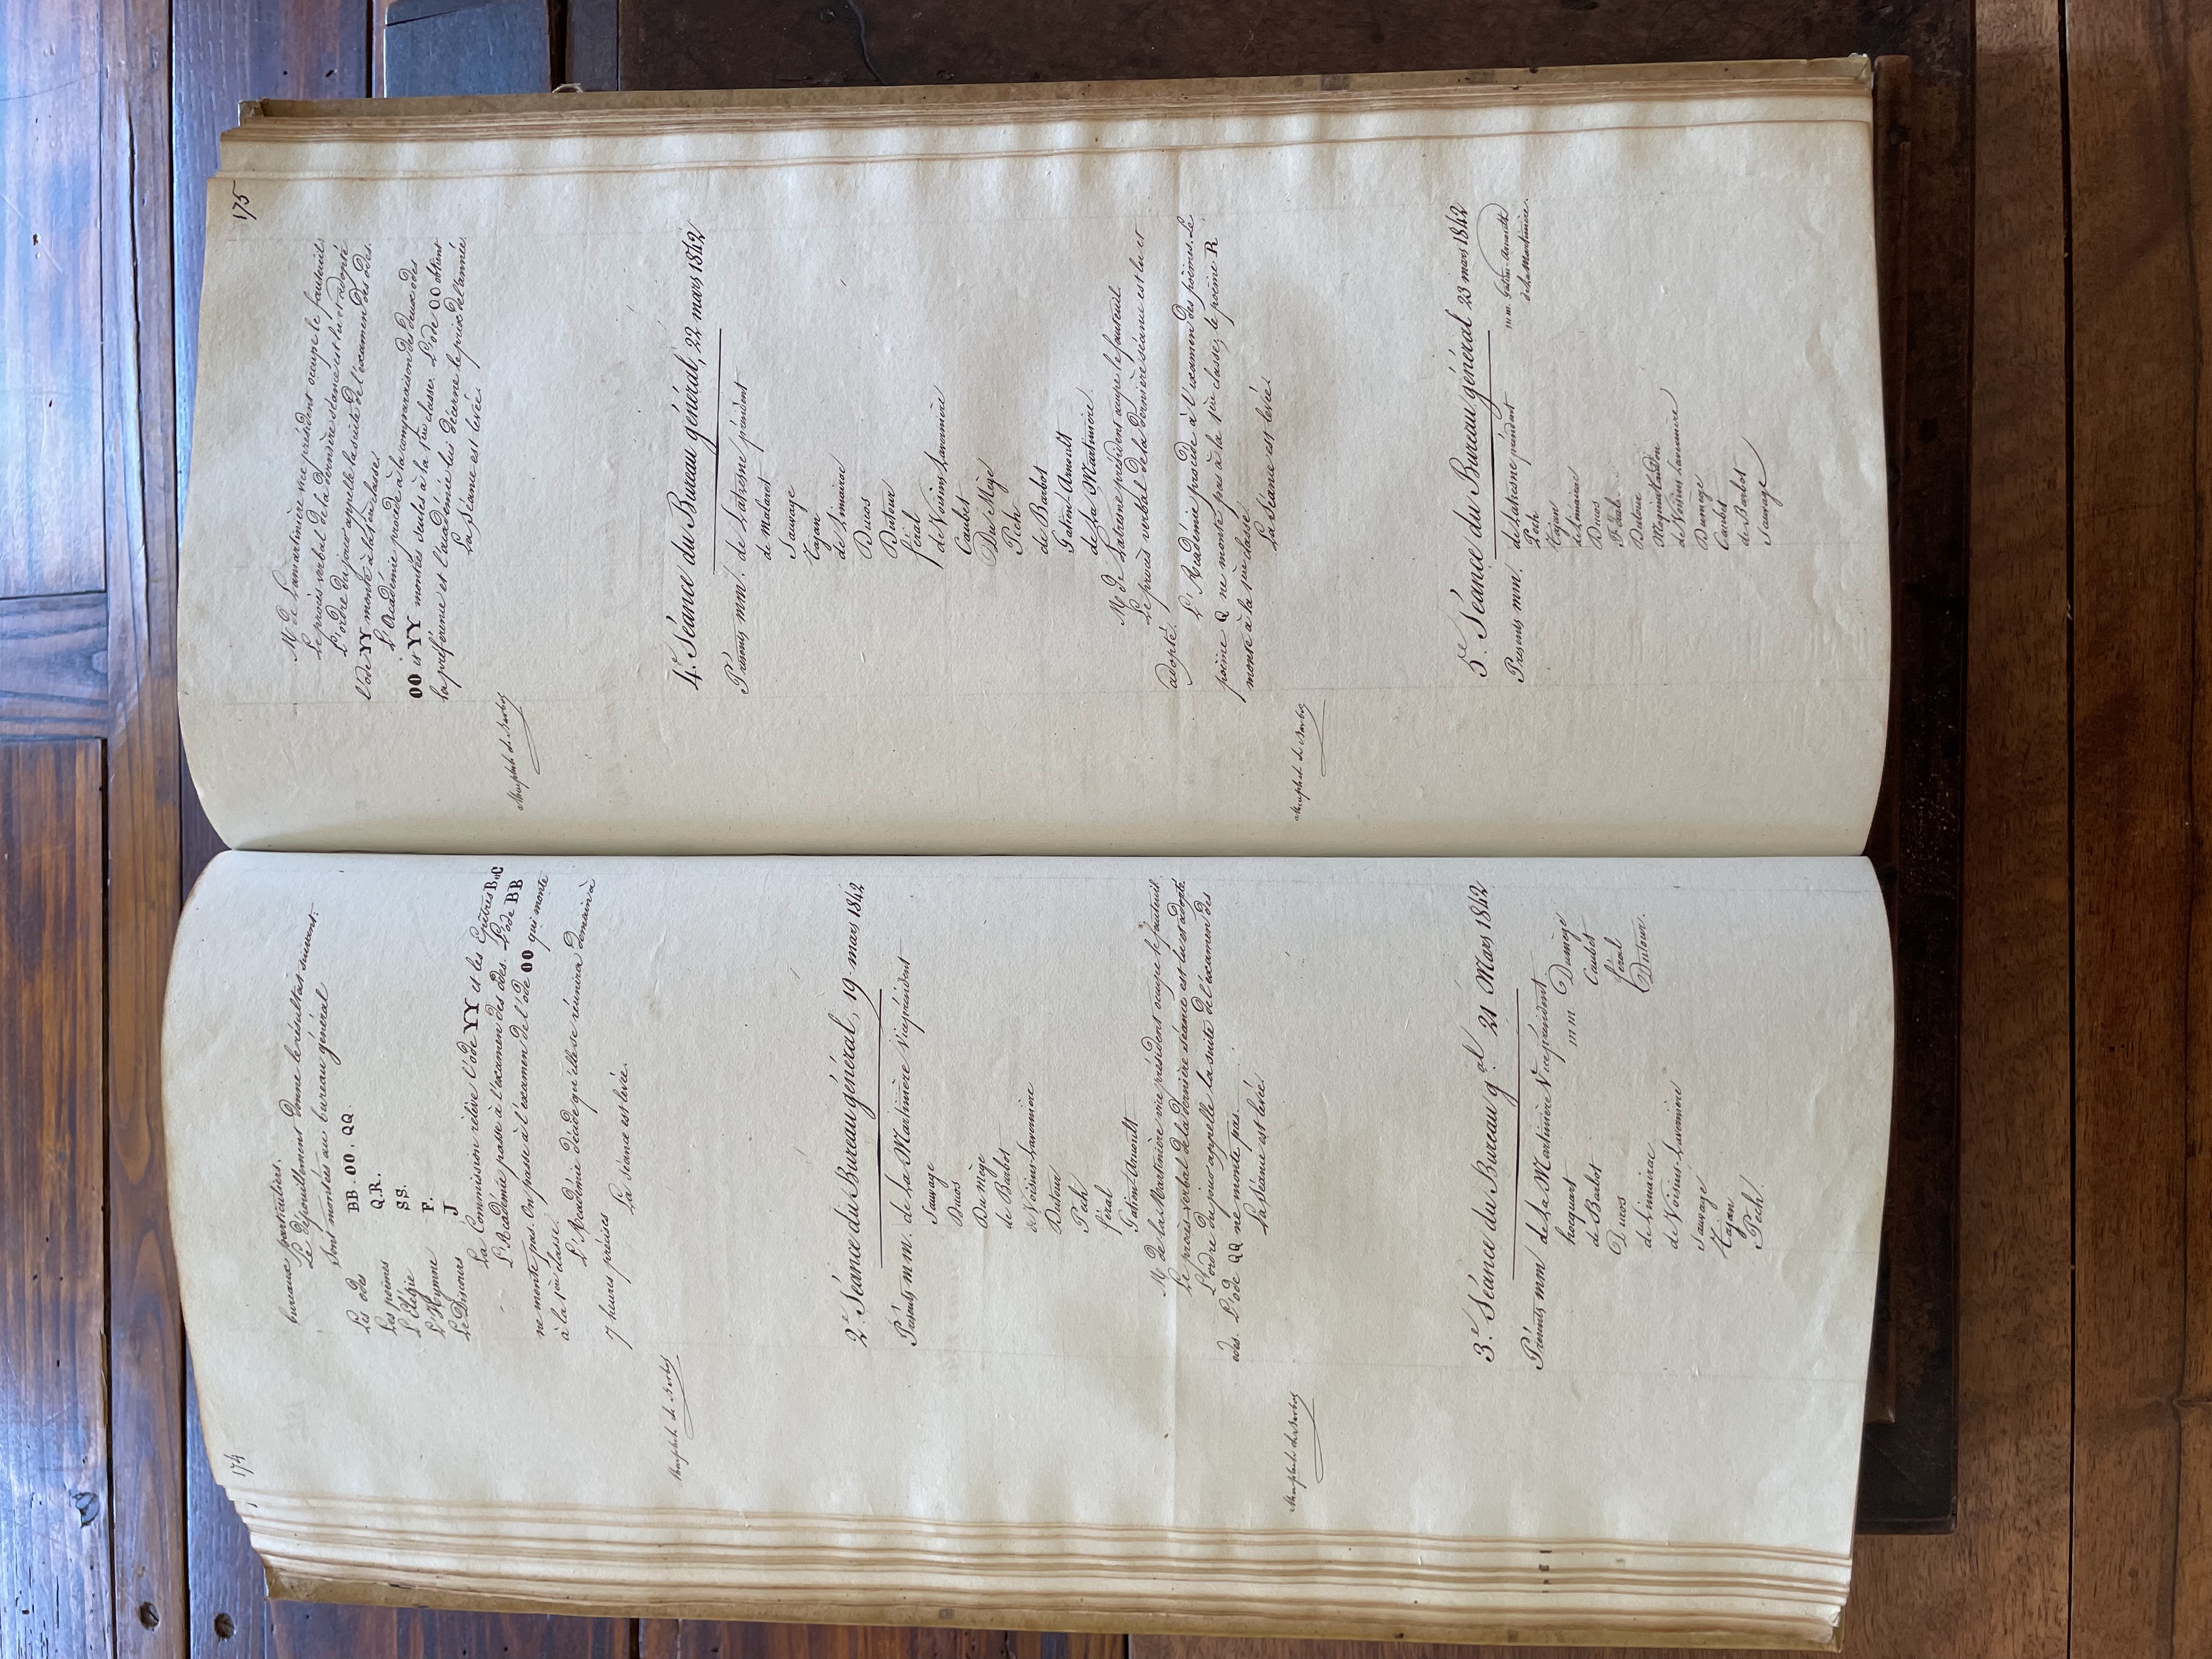 174
bureaux particuliers.
Le dépouillement donne le résultat suivant:
Sont montées au bureau général
Les odes BB. OO. QQ.
Les poèmes Q.R.
L'Elégie SS.
L'Hymne F.
Le Discours J
La Commission relève l'ode YY et les Epîtres B et C
L'Académie passe à l'examen des odes. L'ode BB
ne monte pas. On passe à l'examen de l'ode OO qui monte
à la 1ère classe.
L'Académie décide qu'elle se réunira demain à
7 heures précises
La séance est levée.
2e. Séance du Bureau général, 19 mars 1842
Présents m m. de La Martinière Vice président
Sauvage
Ducos
Du mège
de Barbot
de Voisins-Lavernière
Dutour
Pech
féral
Gatien-Arnoult
Mr de la Martinière vice président occupe le fauteuil
Le procès-verbal de la dernière séance est lu et adopté
L'ordre du jour appelle la suite de l'examen des
odes. L'ode QQ ne monte pas.
La Séance est levée.
3e. Séance du Bureau gal. 21 Mars 1842
Présents mm de La Martinière Vice président
hocquart
de Barbot
Ducos
de Limairac
de Voisins-Lavernière
Sauvage
Tajan
Pech
m m Dumège
Caubet
féral
Dutour.
175
Mr de Lamartinière vice président occupe le fauteuil
Le procès verbal de la dernière séance est lu et adopté
L'ordre du jour appelle la suite de l'examen des odes.
l'ode YY monte à la 1ère classe.
L'Académie procède à la comparaison des deux odes
OO et YY montées seules à la 1ère classe. L'ode OO obtient
la préférence et l'académie lui décerne le prix de l'année.
La Séance est levée.
4e. Séance du Bureau général, 22 mars 1842
Présents mm. de Latresne président
de Malaret
Sauvage
Tajan
de Limairac
Ducos
Dutour
féral
de Voisins Lavernière
Caubet
Du Mège
Pech
de Barbot
Gatien-Arnoult
de La Martinière
Mr de Latresne président occupe le fauteuil.
Le procès verbal de la dernière séance est lu et
adopté.
L'Académie procède à l'examen des poèmes. Le
poème Q ne monte pas à la 1ère classe, le poème R
monte à la 1ère classe
La Séance est levée.
5e. Séance du Bureau général 23 mars 1842
Présents mm. de Latresne président
Pech
Tajan
de Limairac
Ducos
Féral
Dutour
de Voisins Lavernière
Dumège
Caubet
de Barbot
Sauvage
m m. Gatien-Arnoult
de La Martinière.